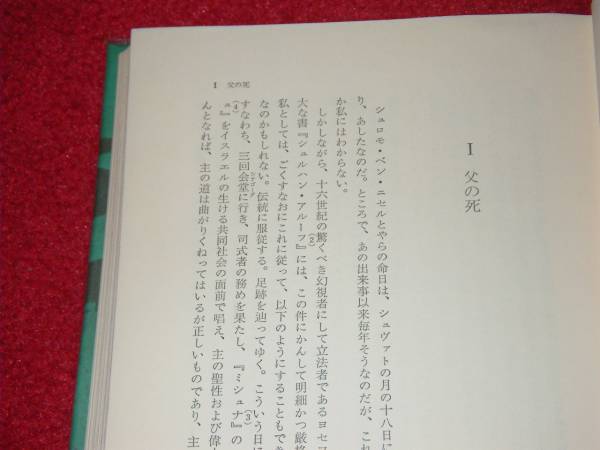 I 父の死
I 父の死
シュロモ・ベン・ニセルとやらの命日は、シュヴァトの月の十八日に
り、あしたなのだ。ところで、あの出来事以来毎年そうなのだが、これ
か私にはわからない。
しかしながら、十六世紀の驚くべき幻視者にして立法者であるヨセフ
(2)
大な書『シュルハン・アルーフ』には、この件にかんして明細かつ厳格
私としては、ごくすなおにこれに従って、以下のようにすることもでき
なのかもしれない。伝統に服従する。足跡を辿ってゆく。こういう日に
すなわち、三回会堂に行き、司式者の務めを果たし、『ミシュナ』の
シナゴーグ
(3)
(4)
ュ』をイスラエルの生ける共同社会の面前で唱え、主の聖性および偉
んとなれば、主の道は曲がりくねってはいるが正しいものであり、主